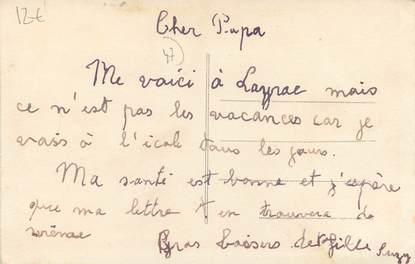 12€
Cher Papa
47
Me voici à Layrac mais
ce n'est pas les vacances car je
vais à l'icole tous les jours.
Ma santé est bonne et j'espère
que ma lettre t'en trouvera de
même
Gros baisers de ta fille Suzy